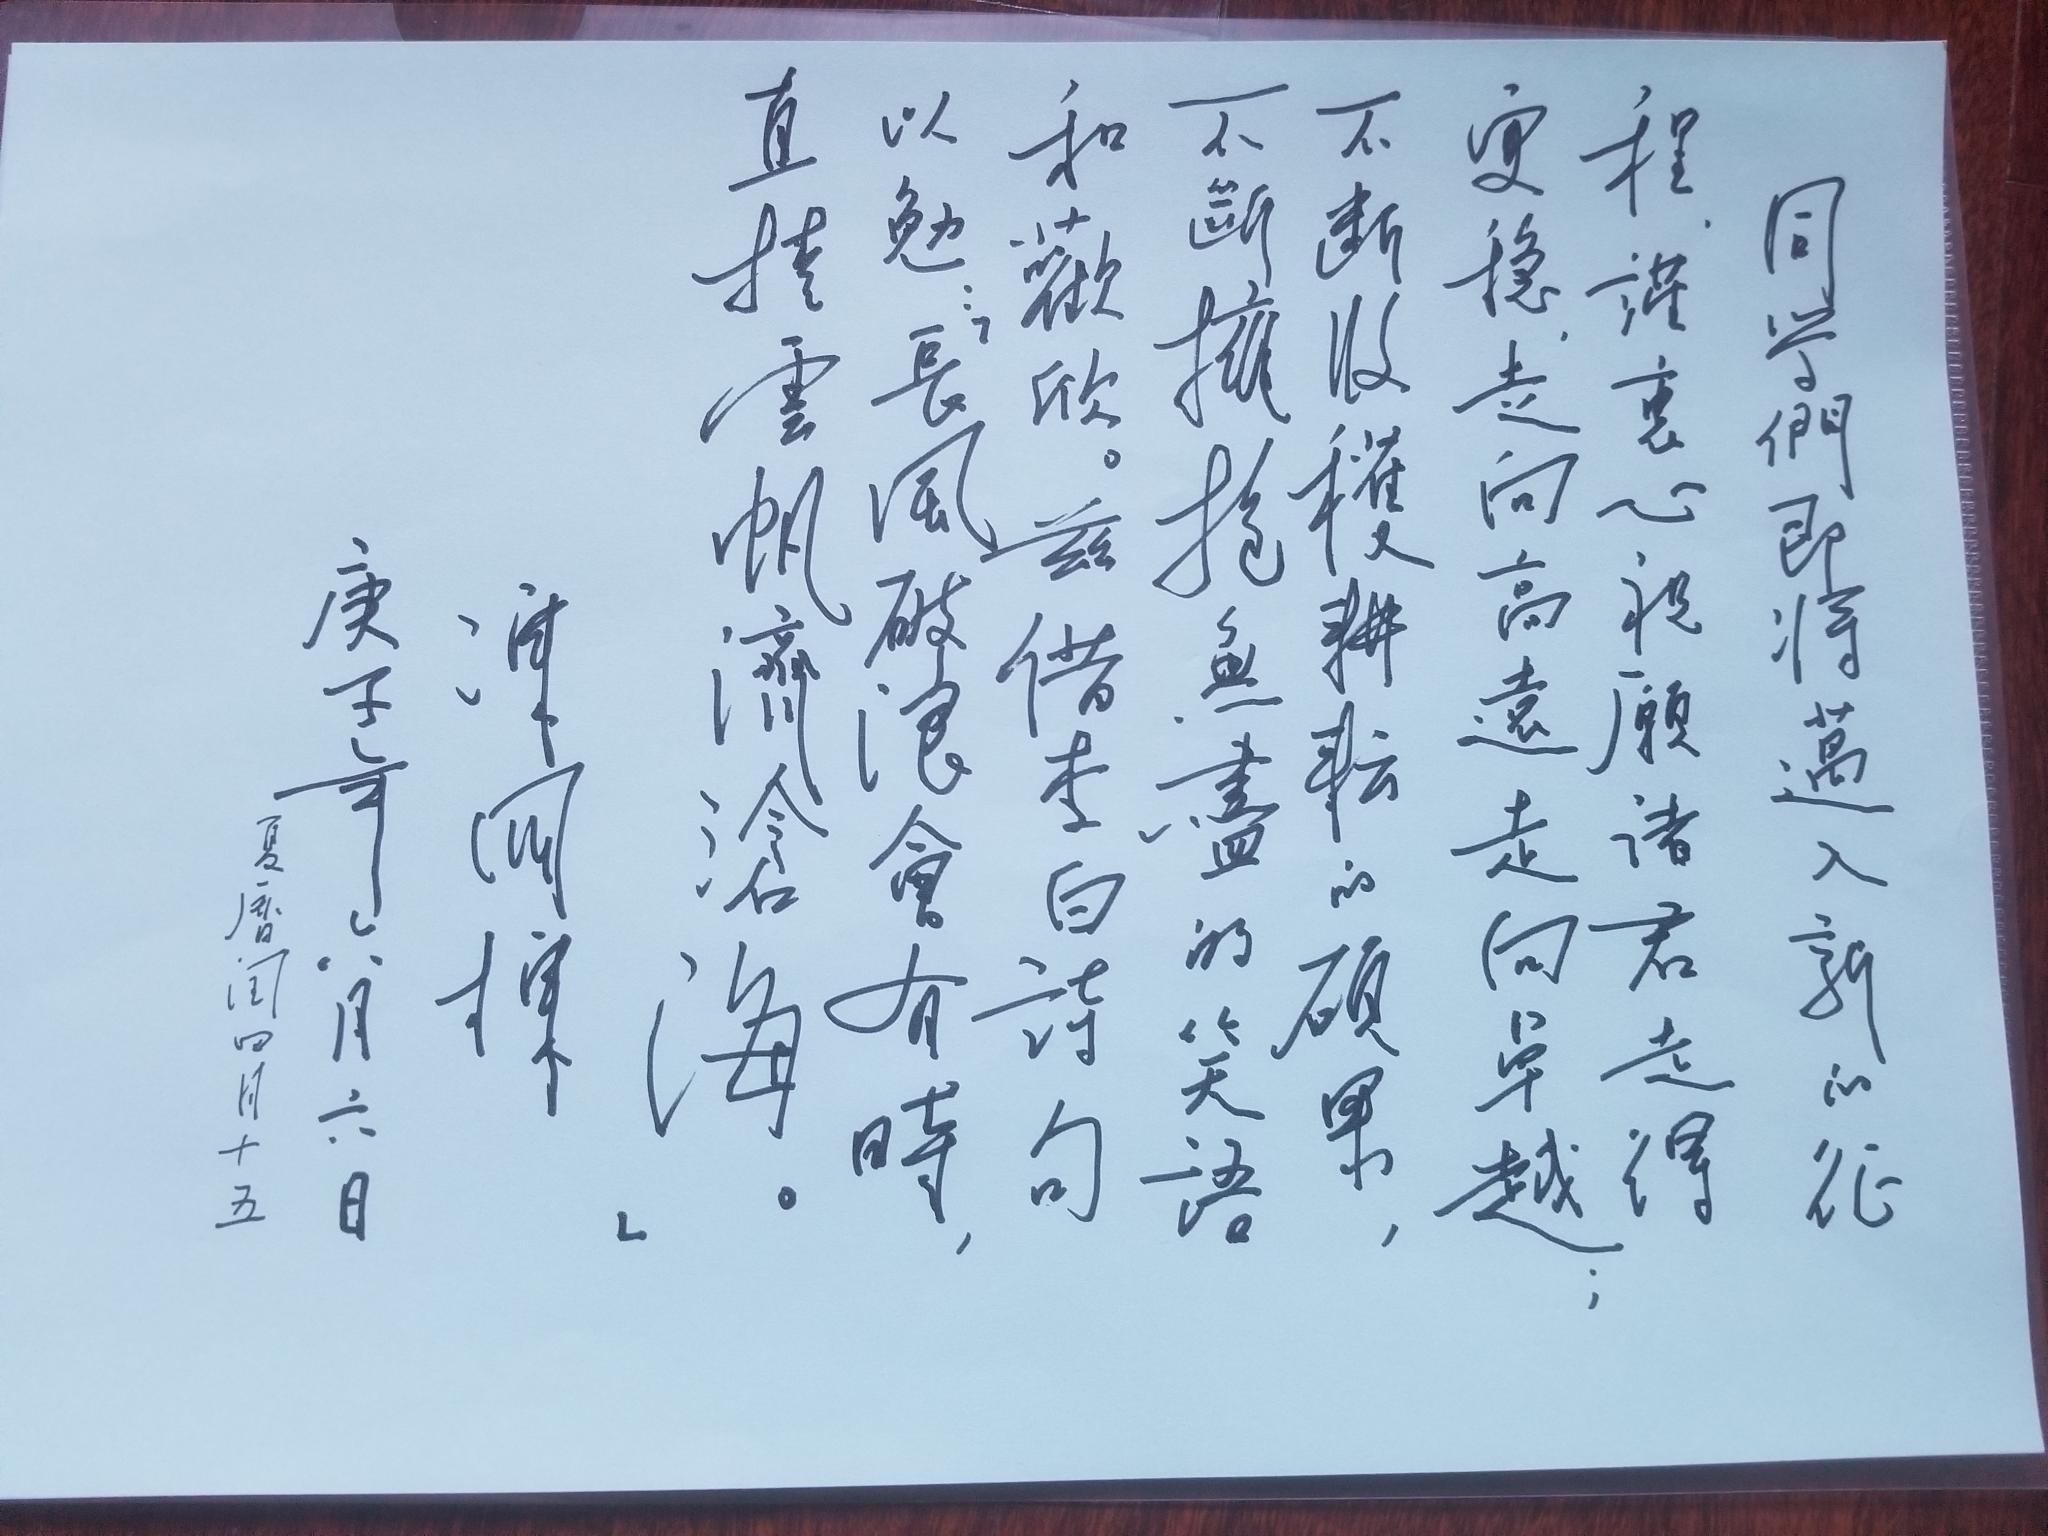 同学們即将邁入新的征
程，謹衷心祝願诸君走得
更穏，走向高遠走向卓越；
不断收穫耕耘的碩果，
不斷擁抱無盡的笑語
和歡欣。兹借李白詩句
以勉：「長風破浪會有時，
直挂雲帆濟滄海。」
庚子年六月六日
夏曆闰四月十五